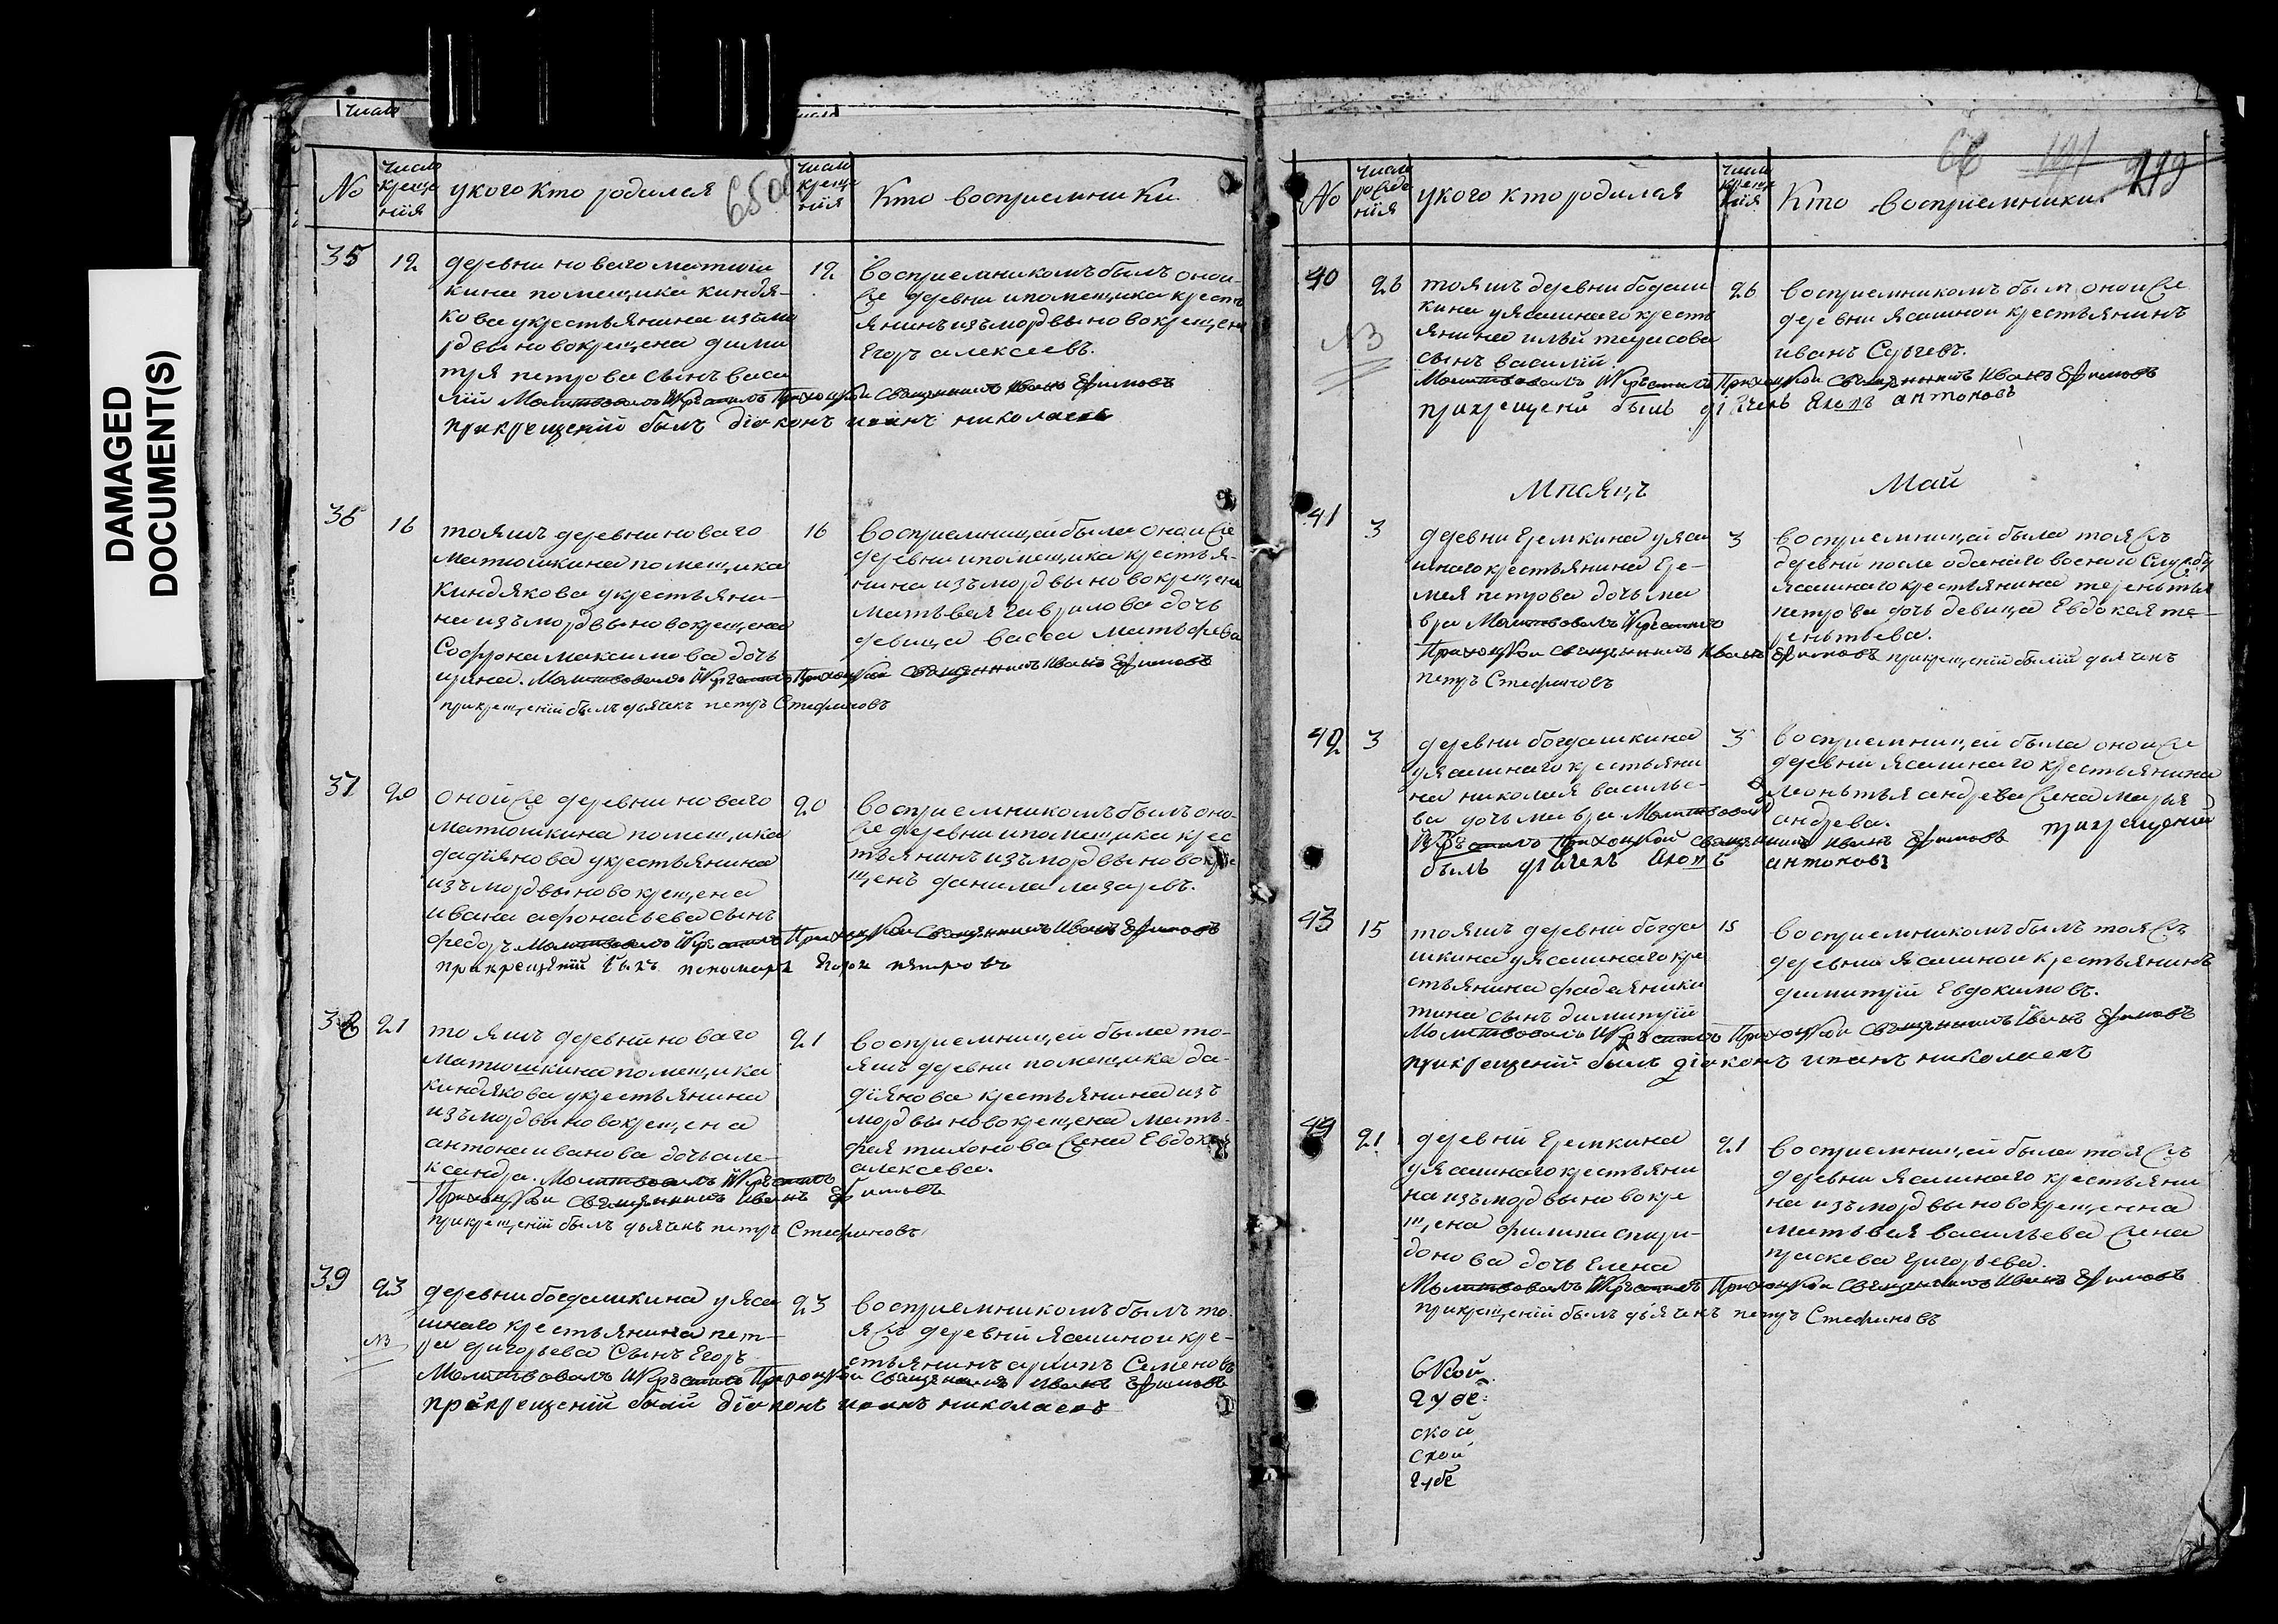 DAMAGED
DOCUMENT(S)
число
№
число креще нїя
у кого кто родился
65об
число креще нїя
Кто восприемники
35
12
деревни новаго матюш
кина помещика киндя-
кова укрестьянина изъмо
рдвы новокрещена дими
тря петрова сынъ васи
лїй Молитвовалъ Икрестилъ Приходской священникъ Иванъ Ефимовъ
прикрещенїй былъ дїаконъ иванъ николаевъ
12
восприемникомъ былъ оной
же деревни ипомещика кресть
янинъ изъмордвы новокрещенъ
Егоръ алексеевъ.
36
16
тояжъ деревни новаго
матюшкина помещика
киндякова укрестьяни-
на изъмордвы новокрещена
Софрона максимова дочь
ирина. Молитвовалъ Икрестилъ Приходской священникъ Иванъ Ефимовъ
прикрещенїй былъ дьячекъ петръ Стефановъ
16
восприемницей была оной же
деревни ипомещика крестья-
нина изъмордвы новокрещена
матьвея гаврилова дочь
девица васса матьфева
37
20
онойже деревни новаго
матюшкина помещика
дадїянова укрестьянина
изъмордвы новокрещена
ивана афонасьева сынъ
федоръ Молитвовалъ Икрестилъ Приходской священникъ Иванъ Ефимовъ
прикрещенїй былъ пономарь Егоръ петровъ
20
восприемникомъ былъ оной
же деревни ипомещика крес
тьянинъ изъмордвы новокре
щенъ данила лазаревъ.
38
21
тояжъ деревнй новаго
матюшкина помещика
киндякова укрестьянина
изъмордвы новокрещена
антона иванова дочь але-
ксандра. Молитвовалъ Икрестилъ
Приходской священникъ Иванъ Ефимовъ
прикрещенїй былъ дьячекъ петръ Стефановъ
21
восприемницей была то-
яжъ деревни помещика да-
дїянова крестьянина изъ
мордвы новокрещена мать-
фея тихонова жена Евдокея
алексева.
39
23
NB
деревни богдашкина уяса
шнаго крестьянина пет-
ра григорьева Сынъ Егоръ
Молитвовалъ Икрестилъ Приходской священникъ Иванъ Ефимовъ
прикрещенїй былъ дїаконъ иванъ николаевъ
23
восприемникомъ былъ то-
яжъ деревнй ясашной кре-
стьянинъ архипъ Семеновъ
66 101 219
№
число рожде нїя
у кого кто родился
число креще нїя
Кто восприемники
40
26
NB
тояжъ деревни богдаш
кина уясашнаго кресть
янина ильи тарасова
сынъ василїй.
Молитвовалъ Икрестилъ Приходской священникъ Иванъ Ефимовъ
прикрещенїй былъ дьячекъ Яковъ антоновъ
26
восприемникомъ был онойже
деревни ясашной крестьянинъ
иванъ Сергеевъ.
Мпсяцъ Май
41
3
деревни Еремкина уяса
шнаго крестьянина Ере-
мея петрова дочь ма
вра Молитвовалъ Икрестилъ
Приходской священникъ Иванъ Ефимовъ прикрещенїй былъ дьячекъ
петръ Стефановъ
3
восприемницей была тояжъ
деревнй после оданаго военой Службу
ясашнаго крестьянина терентья
петрова дочь девица Евдокея те-
реньтьева.
42
3
деревни богдашкина
уясашнаго крестьяни
на николая василье-
ва дочь мавра Молитвовалъ
Икрестилъ Приходской священникъ Иванъ Ефимовъ прикрещенїй
былъ дьячекъ Яковъ антоновъ
3
восприемницей была онойже
деревнй ясашнаго крестьянина
леоньтья андрева жена марья
андрева.
43
15
тояжъ деревни богда
шкина уясашнаго кре
стьянина фадея ники
тина сынъ димитрїй
Молитвовалъ Икрестилъ Приходской священникъ Иванъ Ефимовъ
прикрещенїй былъ дїаконъ иванъ николаевъ
15
восприемникомъ былъ тояжъ
деревни ясашной крестьянинъ
димитрїй Евдокимовъ.
44
21
деревнй Еремкина
уясашнаго крестьяни
на изъмордвы новокре
щена филипа спири-
донова дочь Елена
Молитвовалъ Икрестилъ Приходской священникъ Иванъ Ефимовъ
прикрещенїй былъ дьячекъ петръ Стефановъ
21
восприемницей была тояжъ
деревни ясашнаго крестьяни
на изъмордвы новокрещенна
матьвея васильева жена
праскева григорьева.
ской
губе:
ской
ской
губе